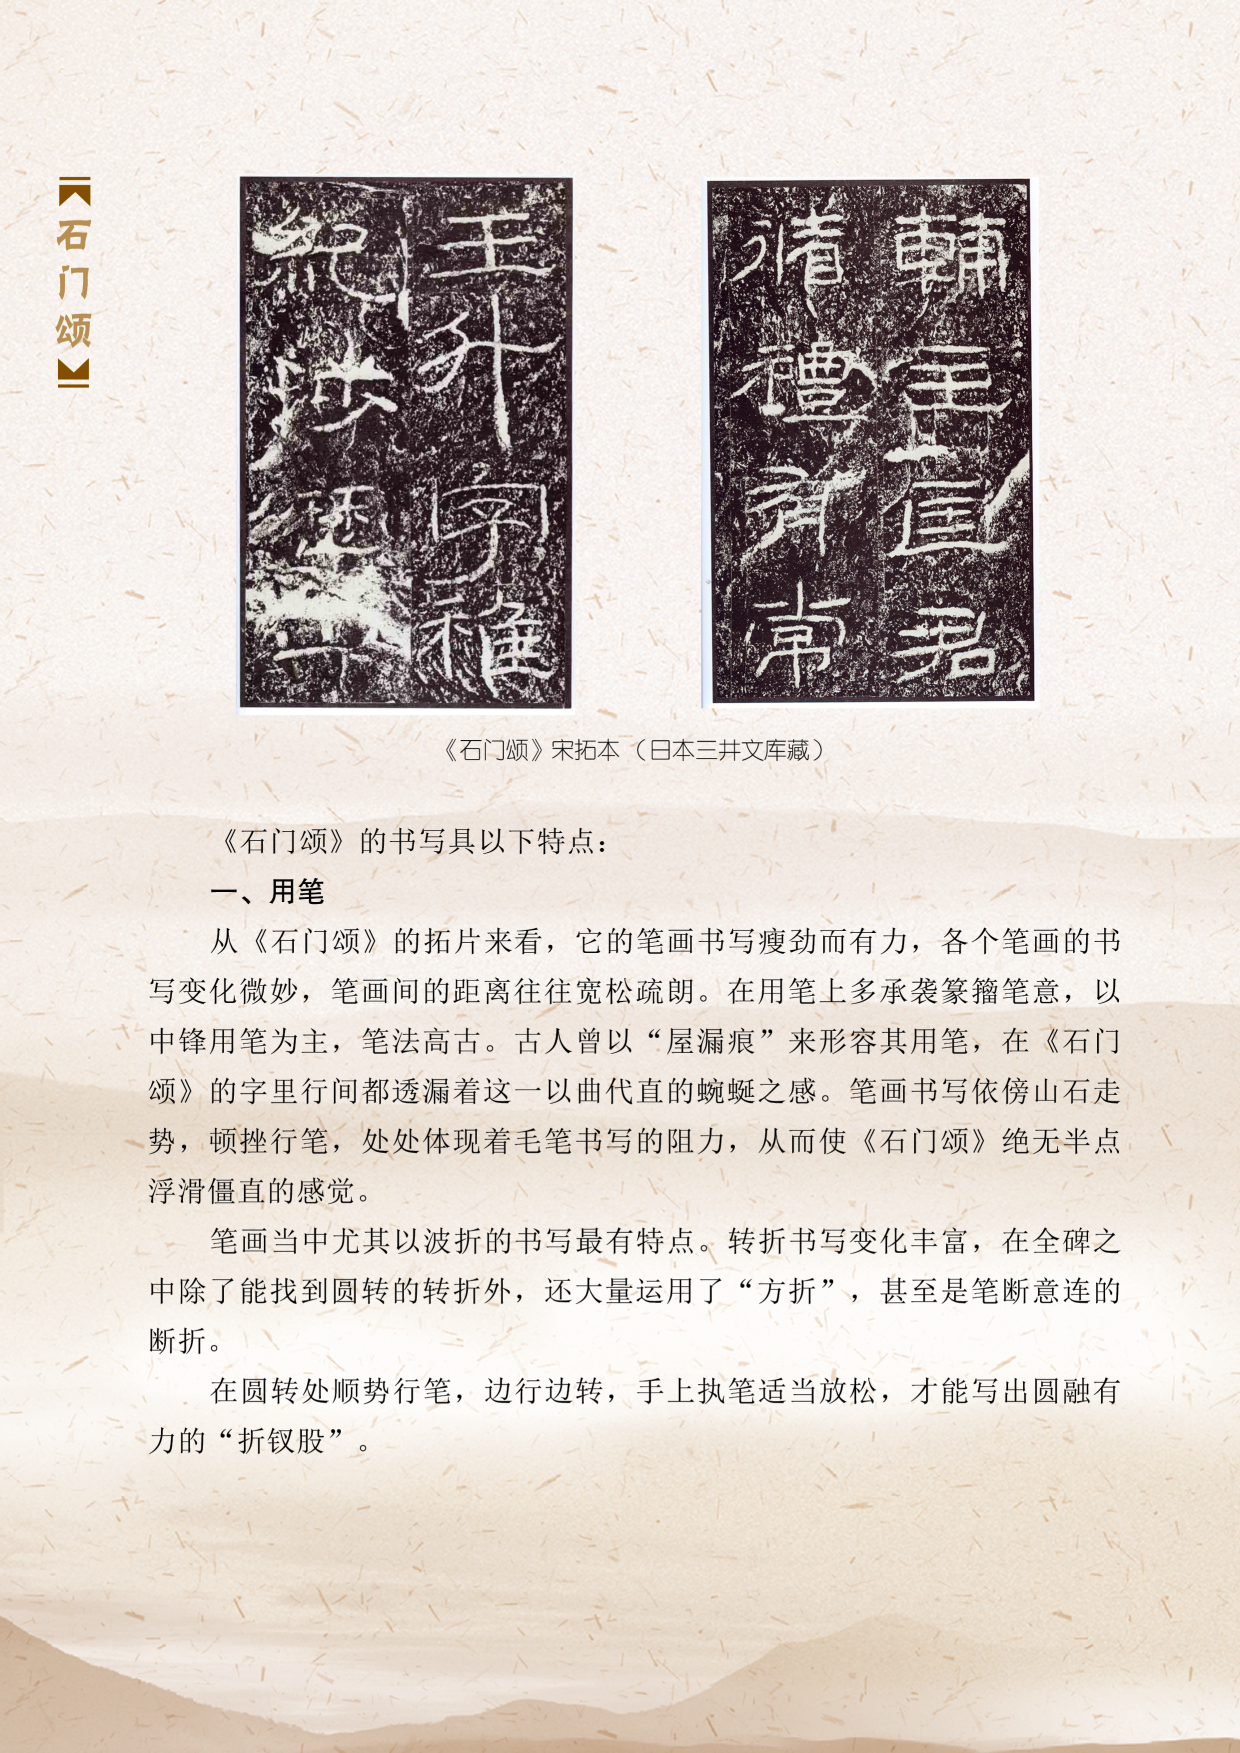 石门颂
王升字稚
紀涉
輔主匡君
循禮有常
《石门颂》宋拓本（日本三井文库藏）
《石门颂》的书写具以下特点：
一、用笔
从《石门颂》的拓片来看，它的笔画书写瘦劲而有力，各个笔画的书
写变化微妙，笔画间的距离往往宽松疏朗。在用笔上多承袭篆籀笔意，以
中锋用笔为主，笔法高古。古人曾以“屋漏痕”来形容其用笔，在《石门
颂》的字里行间都透漏着这一以曲代直的蜿蜒之感。笔画书写依傍山石走
势，顿挫行笔，处处体现着毛笔书写的阻力，从而使《石门颂》绝无半点
浮滑僵直的感觉。
笔画当中尤其以波折的书写最有特点。转折书写变化丰富，在全碑之
中除了能找到圆转的转折外，还大量运用了“方折”，甚至是笔断意连的
断折。
在圆转处顺势行笔，边行边转，手上执笔适当放松，才能写出圆融有
力的“折钗股”。